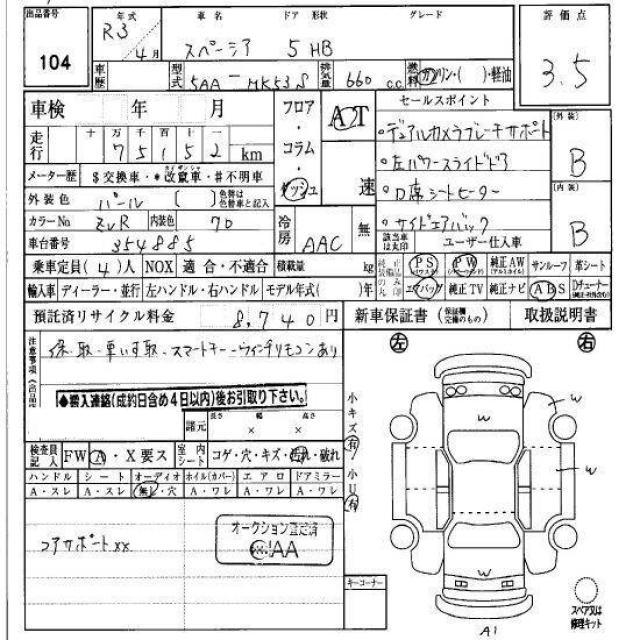 出品番号
104
年式
R3
4月
車名
スペーシア
ドア 形状
5 HB
グレード
評価点
3.5
車歴
型式
5AA - MK53S
排気量
660 cc
燃料
ガソリン・( )・軽油
車検 年 月
走行
十 万 千 百 十 一
7 5 1 5 2 km
メーター歴
$交換車・*改竄車・#不明車
外装色
パール
( )
色替は色替車と記入
カラーNo
ZVR
内装色
70
車台番号
354885
フロア・コラム・ダッシュ
AT
速
冷房
AAC
無
セールスポイント
。デュアルカメラブレーキサポート
。左パワースライドドア
。D席シートヒーター
。サイドエアバック
[外装]
B
[内装]
B
該当車は丸印
ユーザー仕入車
乗車定員( 4 )人
NOX 適合・不適合
積載量 kg
純正装備品のみ丸印
PS (パワステ)
PW
純正AW (アルミホイル)
サンルーフ
革シート
輸入車 ディーラー・並行
左ハンドル・右ハンドル
モデル年式( )年
エアバッグ
純正TV
純正ナビ
ABS
Dチューナー
預託済リサイクル料金
8,740円
新車保証書
(保証欄交換のもの)
取扱説明書
注意事項
保・取・車いす取・スマートキー・ウィンチリモコンあり
●搬入連絡(成約日含め4日以内)後お引取り下さい。
諸元
長さ 幅 高さ
× ×
検査員記入
FW
A・X要ス
室内シート
コゲ・穴・キズ・汚れ・破れ
ハンドル
シート
オーディオ
ホイル(カバー)
エアロ
ドアミラー
A・スレ
A・スレ
無し・穴
A・ワレ
A・ワレ
A・ワレ
小キズ有
小U有
コアサポートxx
オークション査定済
AA
キーコーナー
左
右
W
W
W
W
A1
スペア又は修理キット